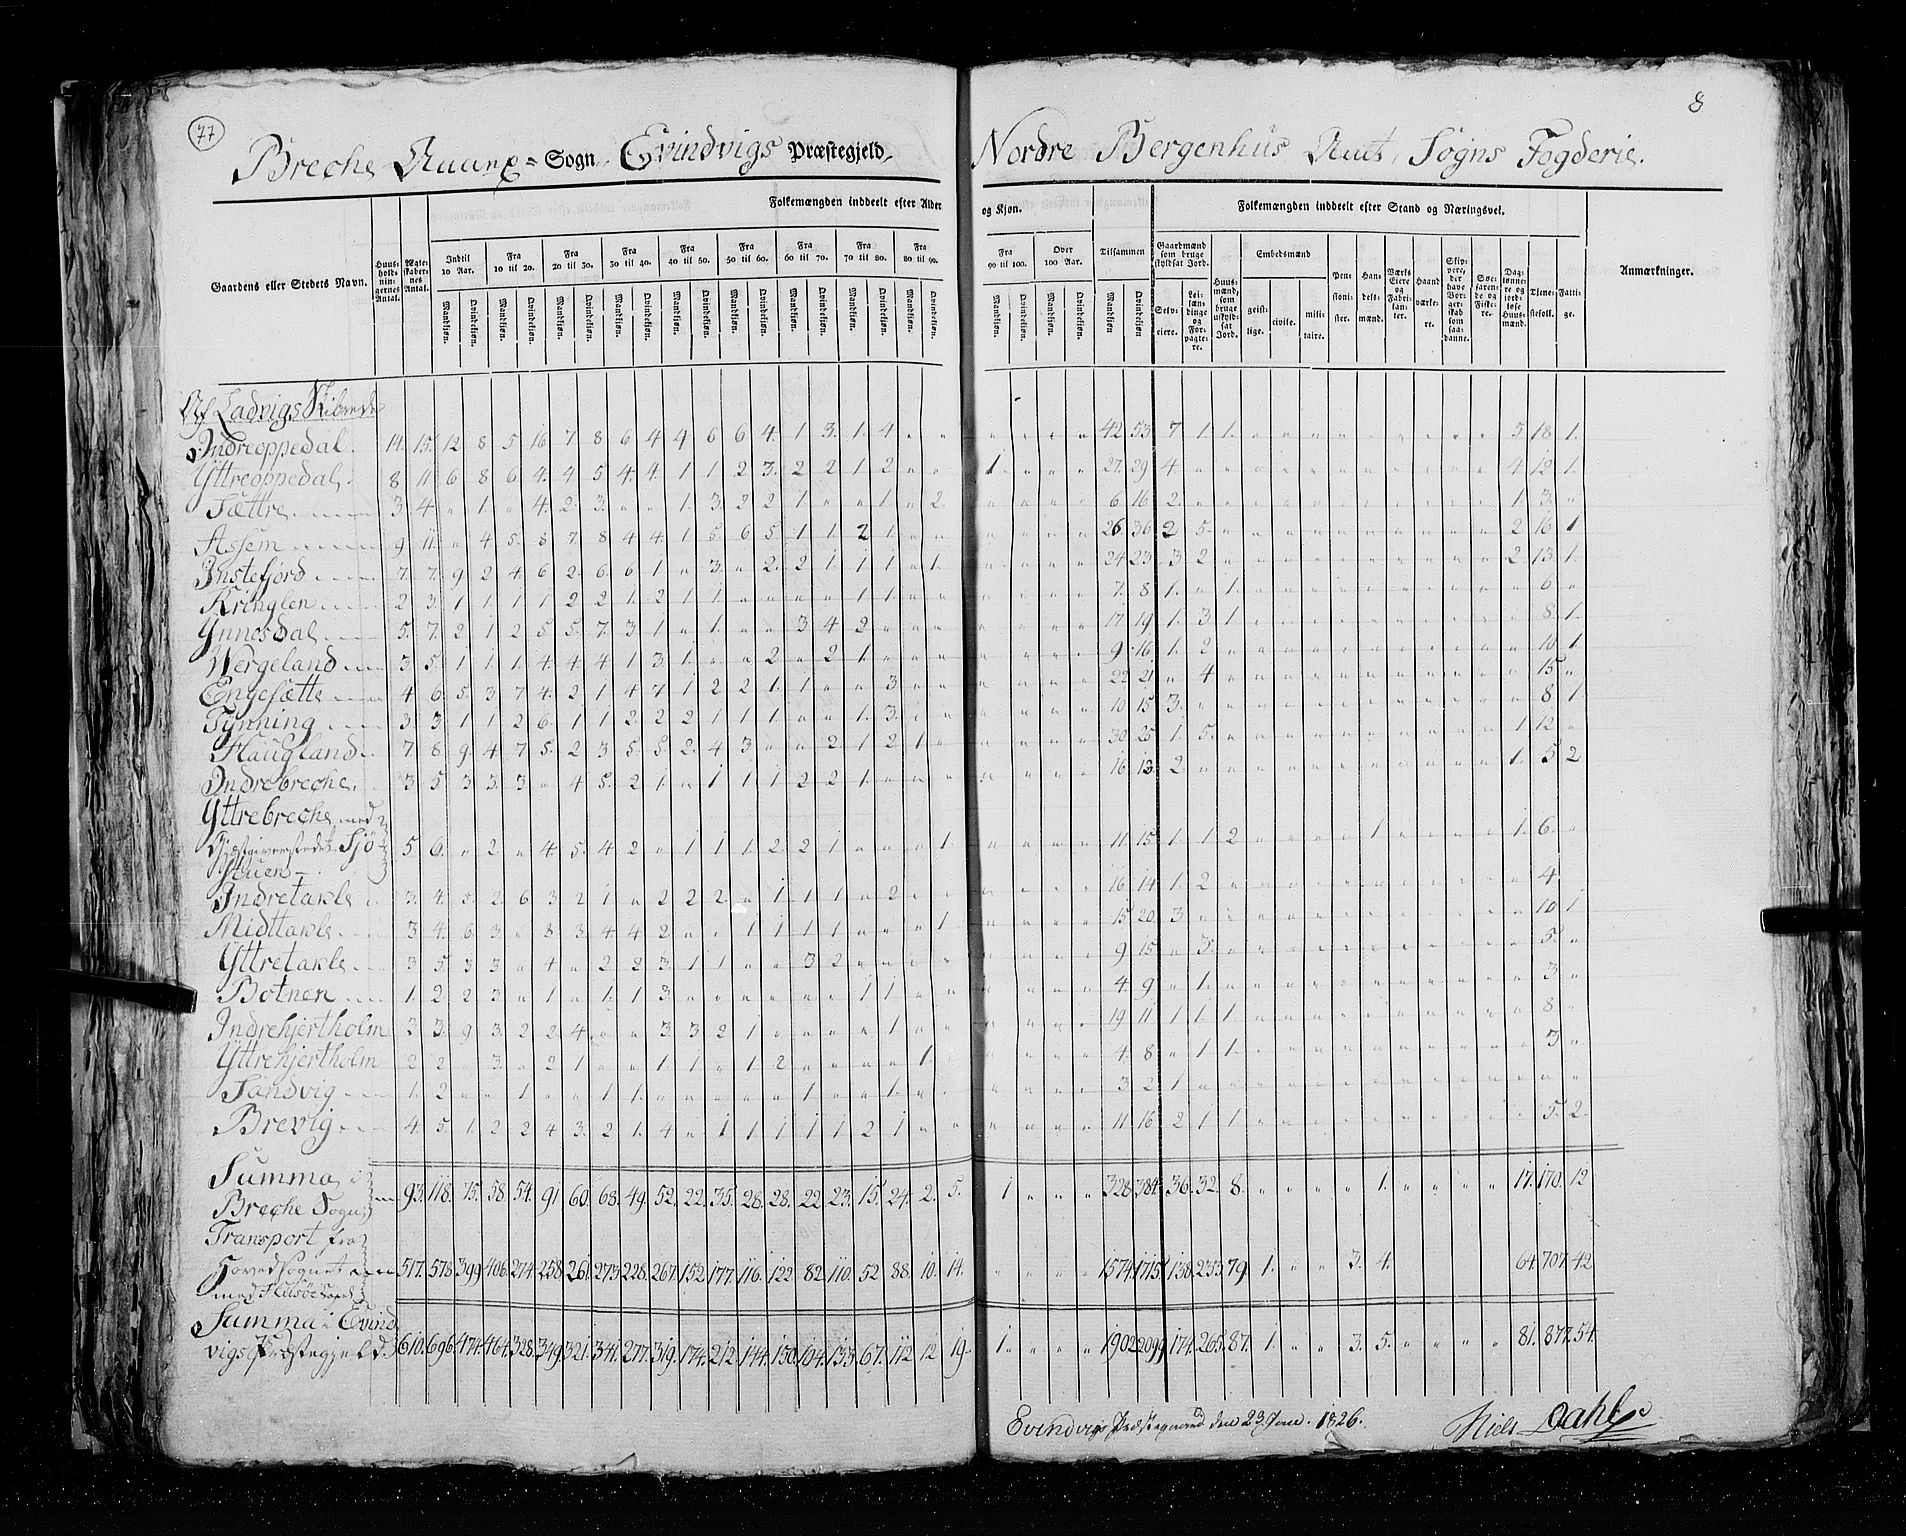 77
8
Breche Annex Sogn, Evindvigs Præstegjeld, Nordre Bergenhus Amt, Sogns Fogderie.
Folkemængden inddeelt efter Alder og Kjøn.
Folkemængden inddeelt efter Stand og Næringsvei.
Gaardens eller Stedets Navn.
Huusholdningernes Antal.
Ægteskabernes Antal.
Indtil 10 Aar. Fra 10 til 20. Fra 20 til 30. Fra 30 til 40. Fra 40 til 50. Fra 50 til 60. Fra 60 til 70. Fra 70 til 80. Fra 80 til 90. Fra 90 til 100. Over 100 Aar. Tilsammen
Mandkjøn. Qvindekjøn.
Gaardmænd som bruge skyldsat Jord. Selveiere. Leilændinge og Forpagtere.
Huusmænd, som bruge uskyldsat Jord.
Embedsmænd geistlige. civile. militaire.
Pensionister. Handelsmænd. Værks Eiere og Fabrikanter. Haandværkere.
Skippere, der have Borgerskab som saadanne.
Søefarende og Fiskere.
Dagлønnere og jordløse Huusmænd.
Tjenestefolk. Fattige.
Anmærkninger.
Af Ladvigs Skibrede
Indreoppedal. 14. 15. 12 8 5 16 7 8 6 4 4 6 6 4. 1 3. 1. 4 42 53 7 1. 1. 5 18 1.
Yttreoppedal. 8 11 6 8 6 4. 4 5 4. 4. 1 1 2 3. 2 2 1 2 1. 27. 29 4 4 12 1.
Sættre 3 4 1 4. 2 3. 1. 3. 2 2 1 1 2. 6 16 2. 1 3.
Assem 9 11. 4. 5. 8 7 8 4 4. 1 5. 6 5 1 1. 2 1. 26 36 2 5. 2 16 1
Instefjord 7. 7. 9 2 4. 6 2. 6. 6 1 3. 2. 2 1 1 1. 1. 24. 23 3 2 2 13. 1.
Kringlen 2 3. 1 1. 1 1. 2 2 1. 2 1 1 1 1 7. 8 1. 1. 6
Ynnesdal 5. 7. 2 1 2 5. 5. 7. 3 1 1. 3 4 2 17 19 1. 3 1. 8 1.
Wergeland 3 5. 1 1. 1. 4. 4. 4 1 3 1. 2 2 1. 9 16. 1. 2 10 1
Engesætte 4 6. 5 3 7 4. 2 1 4 7 1 2 2 1. 1 3. 22 21 4. 15
Tynning 3 3. 1 1 2 6. 1 1 2. 2 2 1 1 1. 1. 3. 10 15 3. 8 1
Haugland 7 8 9 4 7 5. 2 3 5. 5. 2. 4 3 2 1 2 1. 30 25 1. 5. 1 12
Indrebreche. 3 5 3 3. 3 4 5. 2 1. 1 1 1 2 2 1. 16 13 2 1. 5 2
Yttrebreche med
Gjæstgiverstedet Sjø
stuen 5 6. 2 4. 5. 4 2 1 1 1 2. 2 1 1 11 15 1. 1 2 1. 1. 6.
Indretakle 3. 4. 5. 2 6 3 2 1 2 2 2. 1 1 1. 2 16 14 1. 2 4
Midttakle 3 4. 6 3. 8 3. 4 4 2 1 1 1 1 1 15 20 3 10 1
Yttretakle 3 5 3 3 4 2 2 3. 1 1. 3 2 9 15 3. 5.
Botnen 1. 2. 2 3 1 1. 1 3. 1 1 4. 9 1. 3
Indrehjertholm 3 3. 9 3. 2 2. 4. 3. 3 2 1 1 19 11 1. 1 1 8
Yttrehjertholm 2 2 3. 2 1 1 1. 1. 2 1. 4. 8 1 1. 3
Sandvig 1. 2. 1 1 1 1 1. 3 2 1
Brevig 4. 5. 1. 2 2 4 3. 2 1. 4 1. 1 1 1. 1 2. 1 11 16 2 1 1 5. 2.
Summa i
Breche Sogn 93. 118. 75. 58. 54. 91. 60. 68. 49. 52. 22. 35. 28. 28. 22. 23. 15. 24. 2. 5. 1 328. 384. 36. 32. 8. 1. 17. 170. 12
Transport fra
Hovedsognet
med Husøe Capel 517. 578. 399. 406. 274. 258. 261. 273. 228. 267. 152. 177. 116. 122. 82. 110. 52. 88. 10. 14. 1574. 1715. 138. 233. 79. 1. 3. 4. 64. 707. 42
Summa i Evind
vigs Præstegjeld 610. 696. 474. 464. 328. 349. 321. 341. 277. 319. 174. 212. 144. 150. 104. 133. 67. 112 12 19. 1. 1902. 2099. 174. 265. 87. 1. 3. 5. 81. 877. 54.
Evindvigs Præstegaard den 23 Jan. 1826.
Niels Dahl